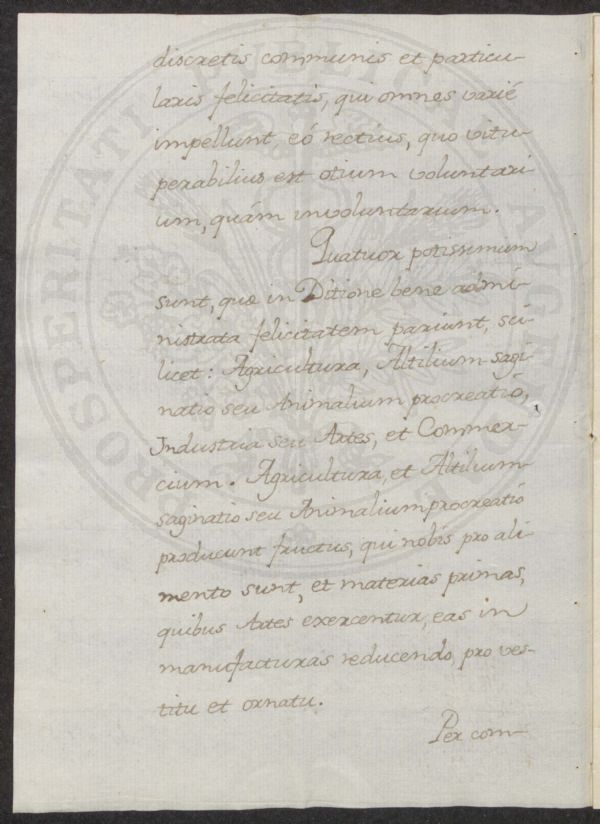 discretis communis et particu-
laris felicitatis, qui omnes varié
impellunt, eó rectius, quo vitu-
perabilius est otium voluntari-
um, quám involuntarium.
Quatuor potissimum
sunt, quæ in Ditione bene admi-
nistrata felicitatem pariunt, sci-
licet: Agricultura, Altilium sagi-
natio seu Animalium procreatió,
Industria seu Artes, et Commer-
cium. Agricultura, et Altilium
saginatio seu Animalium procreatió
producunt fructus, qui nobis pro ali-
mento sunt, et materias primas,
quibus Artes exercentur, eas in
manufacturas reducendo, pro ves-
titu et ornatu.
Per com-